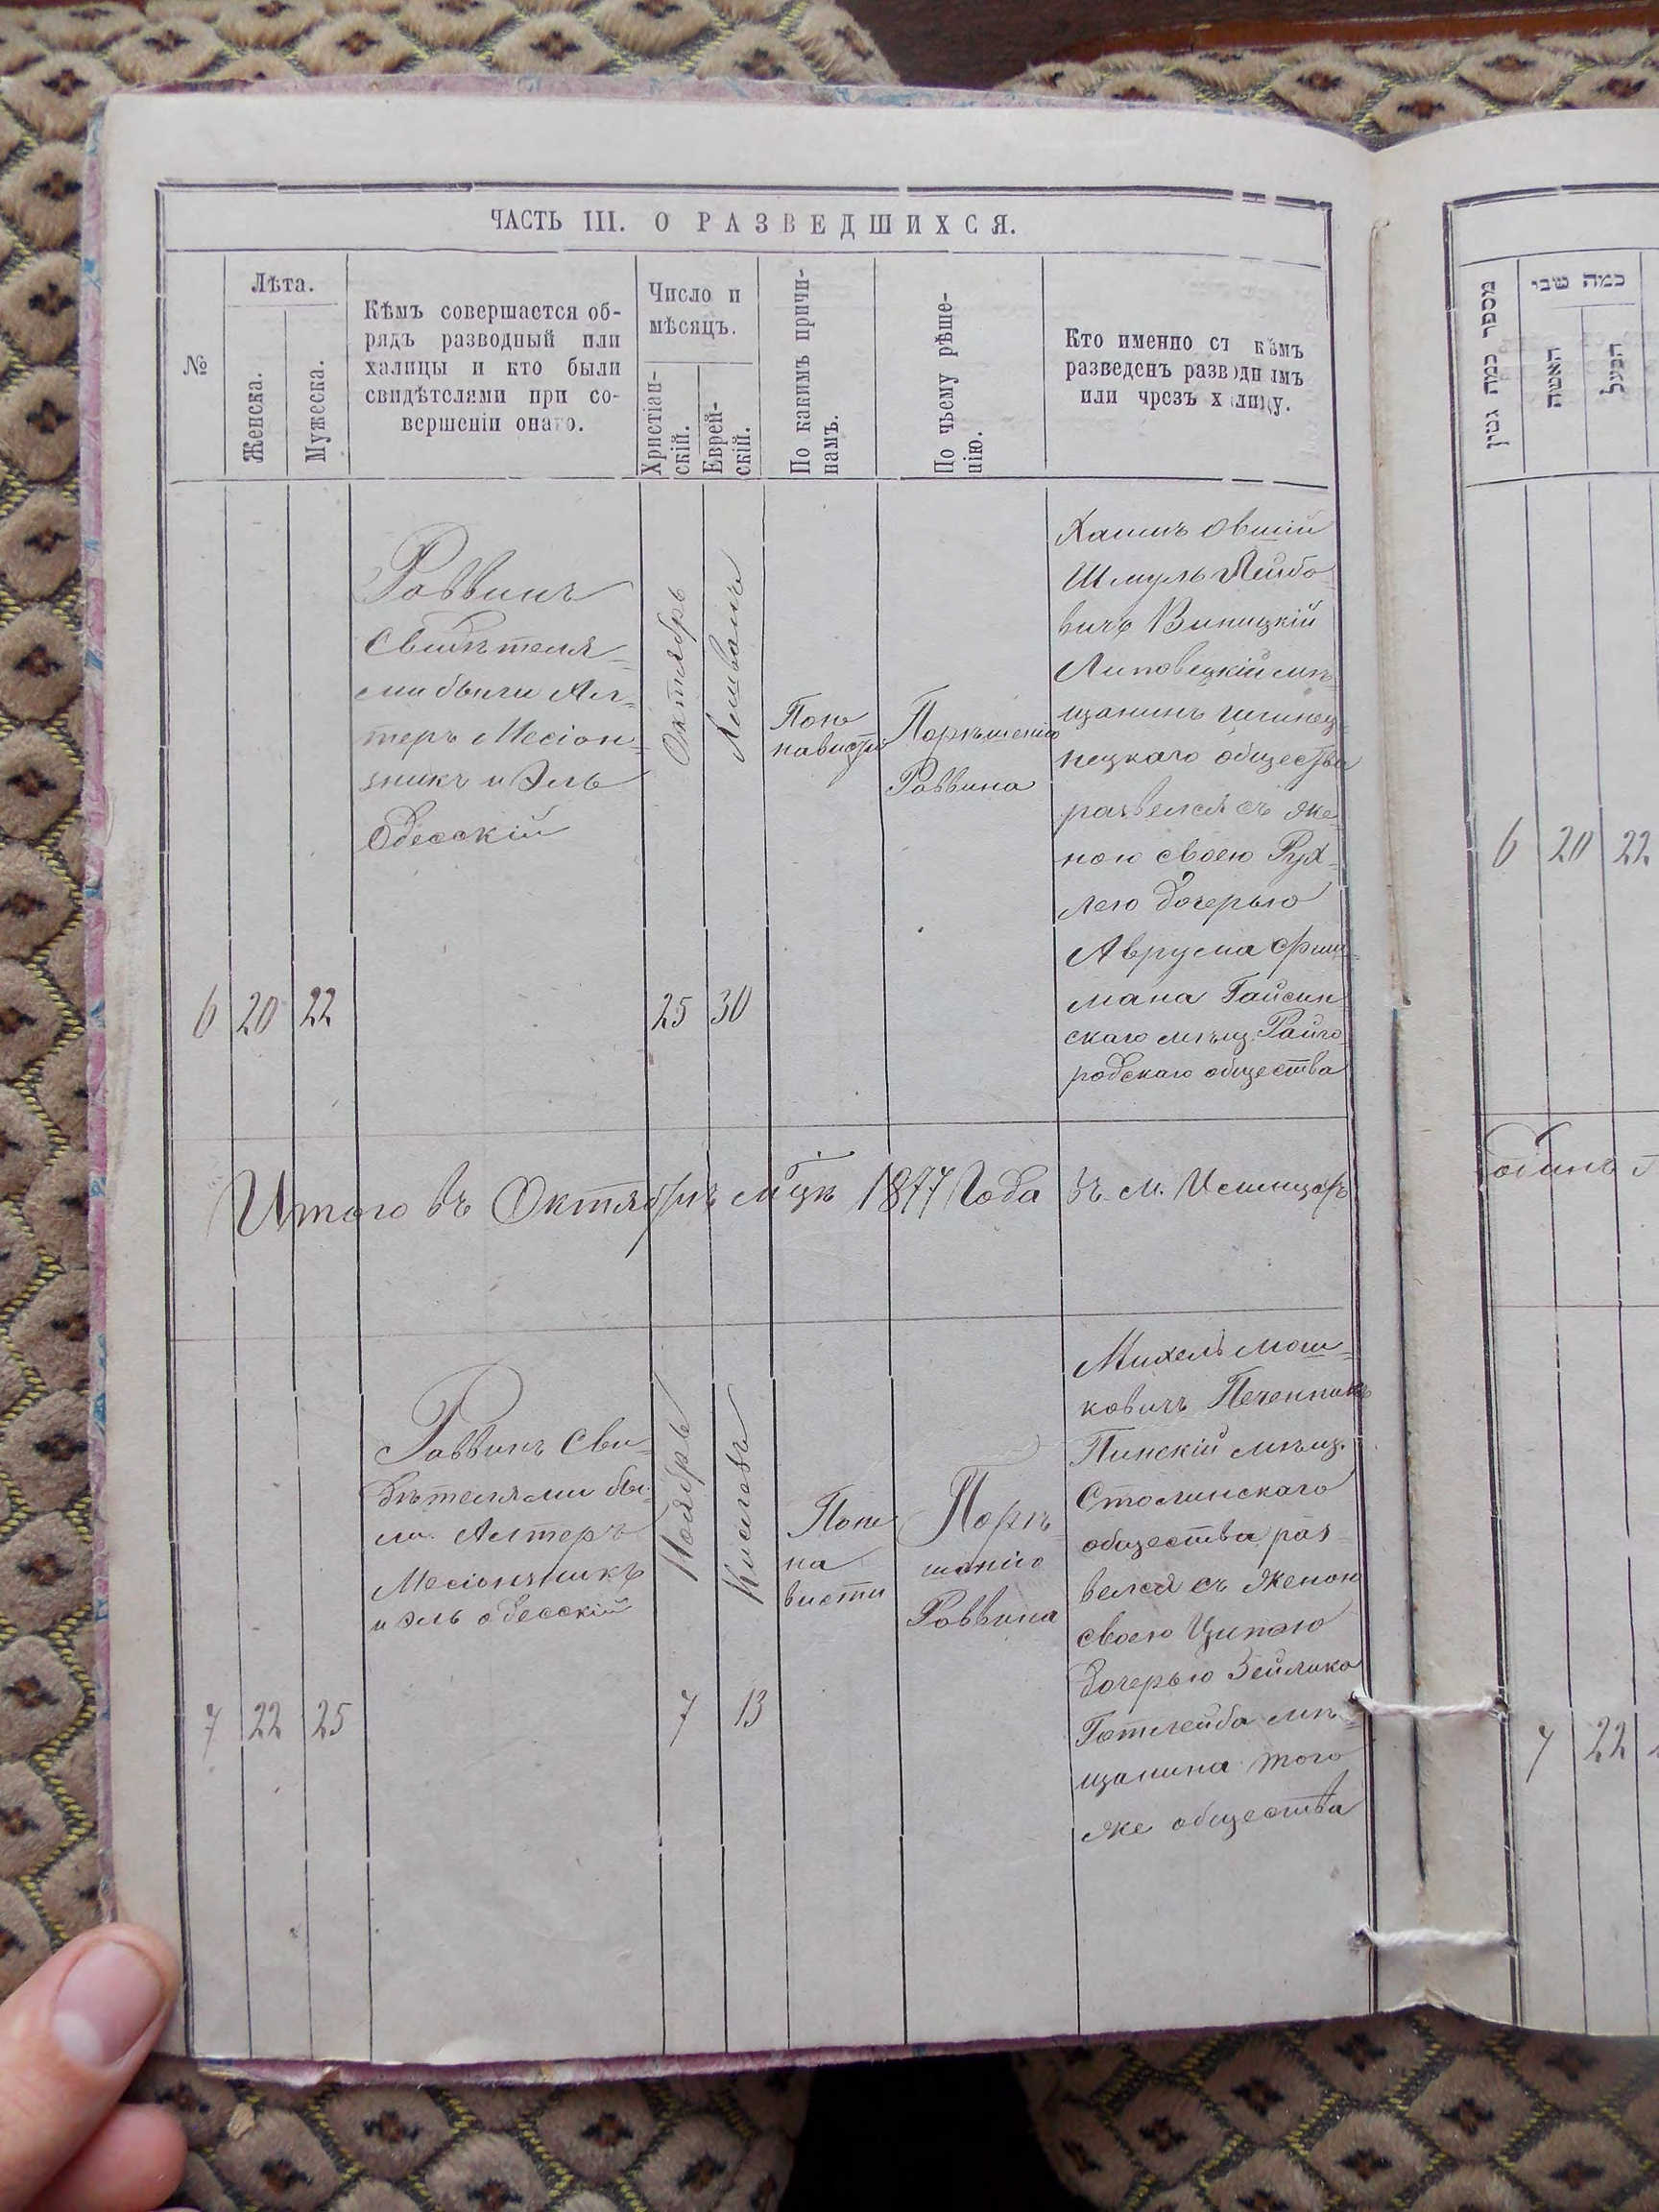 ЧАСТЬ III. О РАЗВЕДШИХСЯ.
№
Лѣта.
Женска.
Мужеска.
Кѣмъ совершается об-
рядъ разводный или
халицы и кто были
свидѣтелями при со-
вершеніи онаго.
Число и
мѣсяцъ.
Христіан-
скій.
Еврей-
скій.
По какимъ причи-
намъ.
По чьему рѣше-
нію.
Кто именно съ кѣмъ
разведенъ разводнымъ
или чрезъ халицу.
6
20
22
Раввинъ
Свидѣтеля-
ми были Ал-
теръ Месіон-
зникъ и Эль
Одесскій
Октябрь
25
Хешванъ
30
Поне
нависти
Порѣшенію
Раввина
Хаимъ Овшій
Шмуль Лейбо-
вичъ Виницкій
Липовецкій мѣ-
щанинъ
нецкаго общества
развелся съ же-
ною своею Рух-
лею дочерью
Аврума Фиш-
мана Гайсин
скаго мѣщ. Райго-
родскаго общества
Итого въ Октябрѣ м̃цѣ 1877 Года въ м.
7
22
25
Раввинъ Сви-
дѣтелями бы-
ли Алтеръ
Месіонзникъ
и Эль Одесскій
Ноябрь
7
Кислевъ
13
Поне
на
висти
Порѣ-
шенію
Раввина
Михель Мош-
ковичъ Печенникъ
Пинскій мѣщ.
Столинскаго
общества раз-
велся съ женою
своею Ципою
дочерью Зейлика
Готлейба мѣ-
щанина того
же общества
מספר כמה גטין
כמה שני
האשה
הבעל
6
20
22
одинъ
7
22